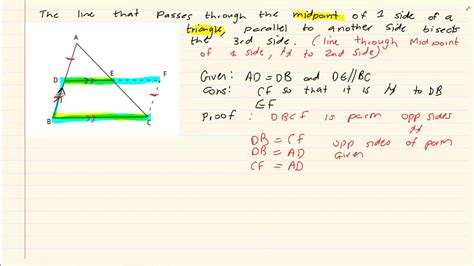 The line that passes through the midpoint of 1 side of a
triangle, parallel to another side bisects
the 3rd side. (line through Midpoint
of 1 side, // to 2nd side)
A
D
E
F
B
C
Given: AD = DB and DE//BC
Cons: CF so that it is // to DB
EF
Proof: DBCF is parm opp sides
//
DB = CF opp sides of parm
DB = AD Given
CF = AD